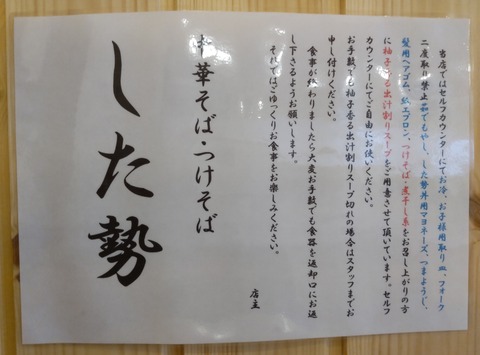 当店ではセルフカウンターにてお冷、お子様用取り皿、フォーク
二度取り禁止品でもやし、した勢丼用マヨネーズ、つまようじ、
髪用ヘアゴム、紙エプロン、つけそば・煮干し系をお召し上がりの方
に柚子香る出汁割りスープをご用意させて頂いています。セルフ
カウンターにてご自由にお使いください。
お手数でも柚子香る出汁割りスープ切れの場合はスタッフまでお
申し付けください。
食事が終わりましたら大変お手数でも食器を返却口にお返
し下さるようお願いします。
それではごゆっくりお食事をお楽しみください。
店主
中華そば・つけそば
した勢